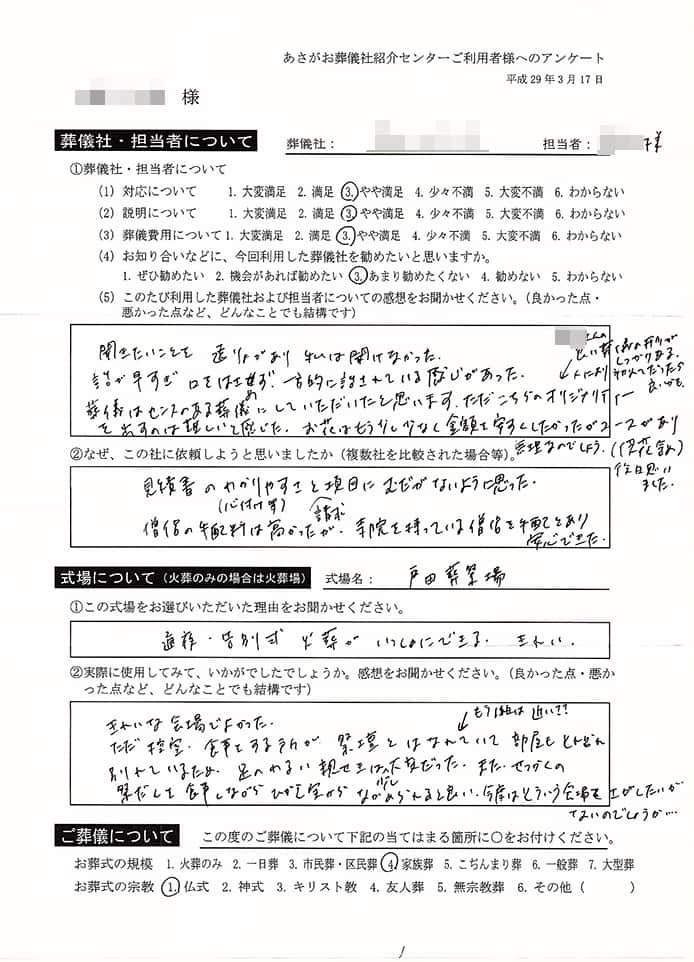 あさがお葬儀社紹介センターご利用者様へのアンケート
平成29年3月17日
様
葬儀社・担当者について 葬儀社: 担当者: 様
①葬儀社・担当者について
(1) 対応について 1. 大変満足 2. 満足 3. やや満足 4. 少々不満 5. 大変不満 6. わからない
(2) 説明について 1. 大変満足 2. 満足 3. やや満足 4. 少々不満 5. 大変不満 6. わからない
(3) 葬儀費用について 1. 大変満足 2. 満足 3. やや満足 4. 少々不満 5. 大変不満 6. わからない
(4) お知り合いなどに、今回利用した葬儀社を勧めたいと思いますか。
1. ぜひ勧めたい 2. 機会があれば勧めたい 3. あまり勧めたくない 4. 勧めない 5. わからない
(5) このたび利用した葬儀社および担当者についての感想をお聞かせください。(良かった点・
悪かった点など、どんなことでも結構です)
聞きたいことを 聞けなかった。
話が早すぎ 口をはさめず、一方的に話されている感じがあった。
葬儀はセンスのある葬儀にしていただいたと思います。ただこちらのオリジナリティー
を出すのは難しいと感じた。お花はもう少し少なく金額を安くしたかったがコースがあり
無理なのでしょう。(供花含め)
後日思い
ました。
②なぜ、この社に依頼しようと思いましたか(複数社を比較された場合等)。
見積書のわかりやすさと項目にむだがないように思った。
(心付け等) 請求
僧侶の手配料は高かったが、寺院を持っている僧侶を手配とあり
安心できた。
式場について(火葬のみの場合は火葬場) 式場名: 戸田葬祭場
①この式場をお選びいただいた理由をお聞かせください。
通夜・告別式 火葬がいっしょにできる。きれい。
②実際に使用してみて、いかがでしたでしょうか。感想をお聞かせください。(良かった点・悪か
った点など、どんなことでも結構です)
きれいな会場でよかった。
ただ控室、食事をする所が祭壇とはなれていて部屋もそれぞれ
別れているため 足のわるい親せきは大変だった。また、せっかくの
祭だんを食事しながら ながめられると良い。今度はそういう会場を上がしたいが
ないのでしょうか…
ご葬儀について この度のご葬儀について下記の当てはまる箇所に○をお付けください。
お葬式の規模 1. 火葬のみ 2. 一日葬 3. 市民葬・区民葬 4. 家族葬 5. こぢんまり葬 6. 一般葬 7. 大型葬
お葬式の宗教 1. 仏式 2. 神式 3. キリスト教 4. 友人葬 5. 無宗教葬 6. その他( )